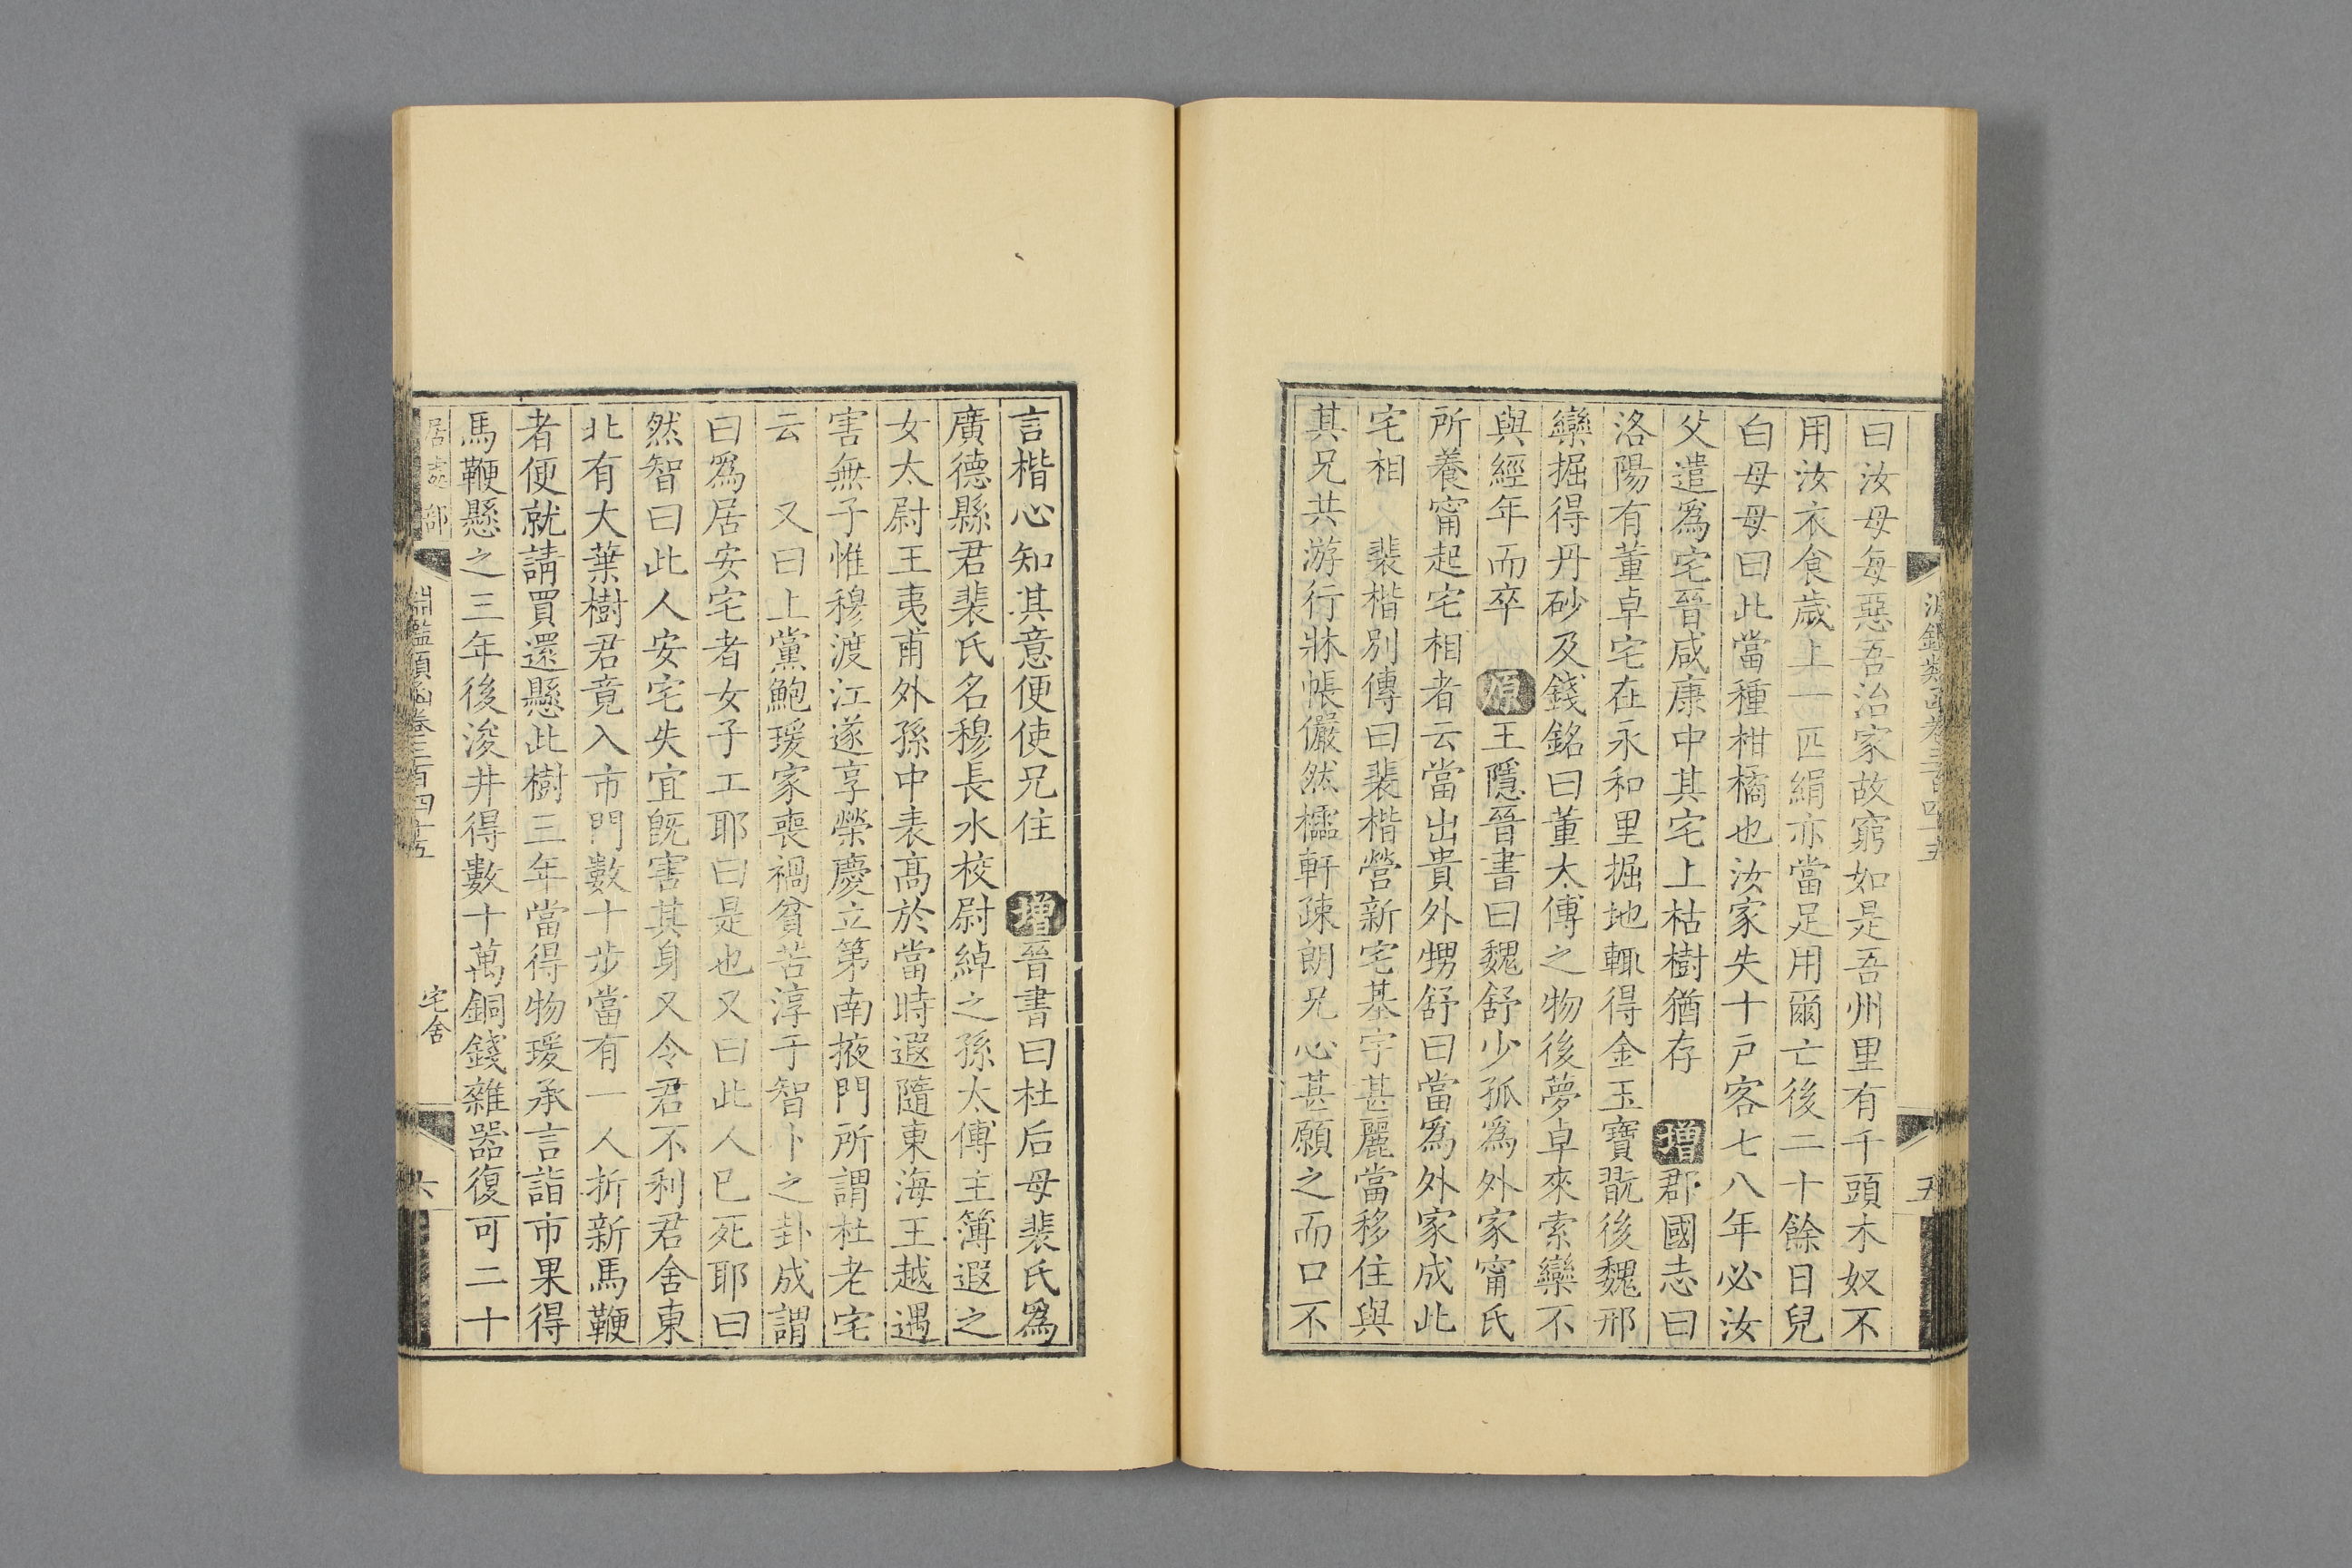 淵鑑類函卷三百四十五
五
曰汝母每惡吾治家故窮如是吾州里有千頭木奴不
用汝衣食歲上一匹絹亦當足用爾亡後二十餘日兒
白母母曰此當種柑橘也汝家失十戶客七八年必汝
父遣爲宅晉咸康中其宅上枯樹猶存 增郡國志曰
洛陽有董卓宅在永和里掘地輒得金玉寶翫後魏邢
巒掘得丹砂及錢銘曰董太傅之物後夢卓來索巒不
與經年而卒 原王隱晉書曰魏舒少孤爲外家甯氏
所養甯起宅相者云當出貴外甥舒曰當爲外家成此
宅相 裴楷別傳曰裴楷營新宅基宇甚麗當移住與
其兄共游行牀帳儼然櫺軒疎朗兄心甚願之而口不
言楷心知其意便使兄住 增晉書曰杜后母裴氏爲
廣德縣君裴氏名穆長水校尉綽之孫太傅主簿遐之
女太尉王夷甫外孫中表高於當時遐隨東海王越遇
害無子惟穆渡江遂享榮慶立第南掖門所謂杜老宅
云 又曰上黨鮑瑗家喪禍貧苦淳于智卜之卦成謂
曰爲居安宅者女子工耶曰是也又曰此人已死耶曰
然智曰此人安宅失宜旣害其身又令君不利君舍東
北有大葉樹君竟入市門數十步當有一人折新馬鞭
者便就請買還懸此樹三年當得物瑗承言詣市果得
馬鞭懸之三年後浚井得數十萬銅錢雜器復可二十
居處部
淵鑑類函卷三百四十五
宅舍
六